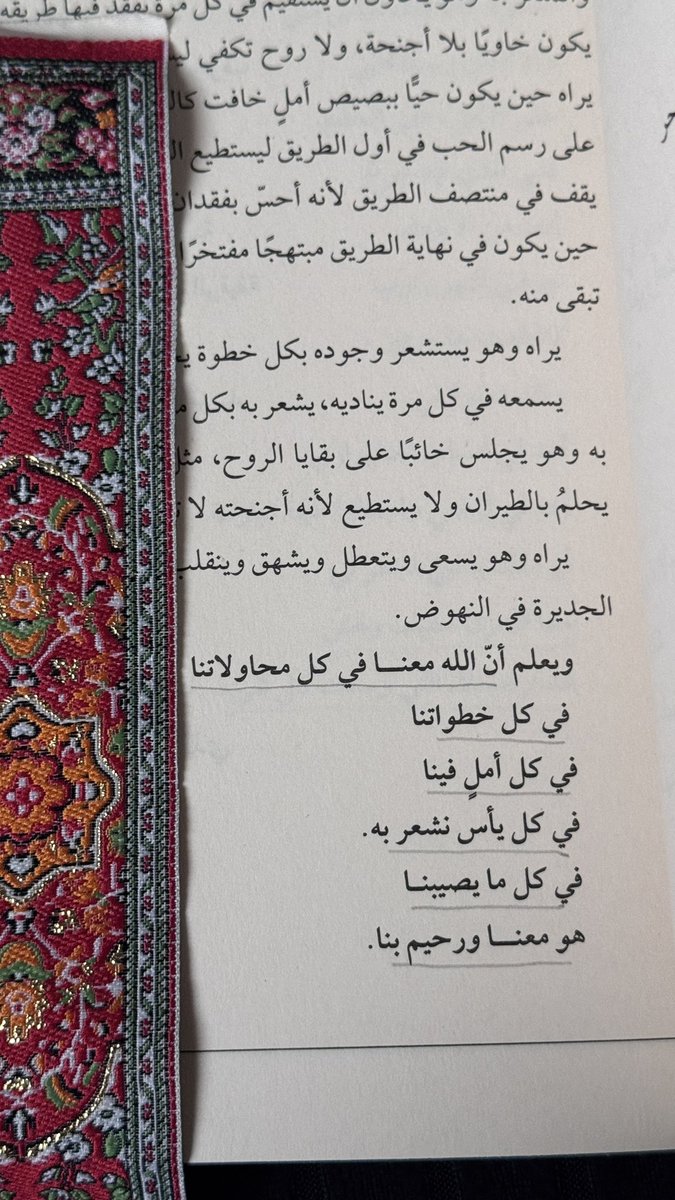 يستقيم في كل مرة يفقد فيها طريقه
يكون خاويًا بلا أجنحة، ولا روح تكفي
يراه حين يكون حيًّا ببصيص أملٍ خافت
على رسم الحب في أول الطريق ليستطيع
يقف في منتصف الطريق لأنه أحسّ بفقدان
حين يكون في نهاية الطريق مبتهجًا مفتخرًا
تبقى منه.
يراه وهو يستشعر وجوده بكل خطوة
يسمعه في كل مرة يناديه، يشعر به بكل
به وهو يجلس خائبًا على بقايا الروح،
يحلمُ بالطيران ولا يستطيع لأنه أجنحته لا
يراه وهو يسعى ويتعطل ويشهق وينقلب
الجديرة في النهوض.
ويعلم أنّ الله معنــا في كل محاولاتنا
في كل خطواتنا
في كل أملٍ فينا
في كل يأس نشعر به.
في كل ما يصيبنــا
هو معنــا ورحيم بنا.